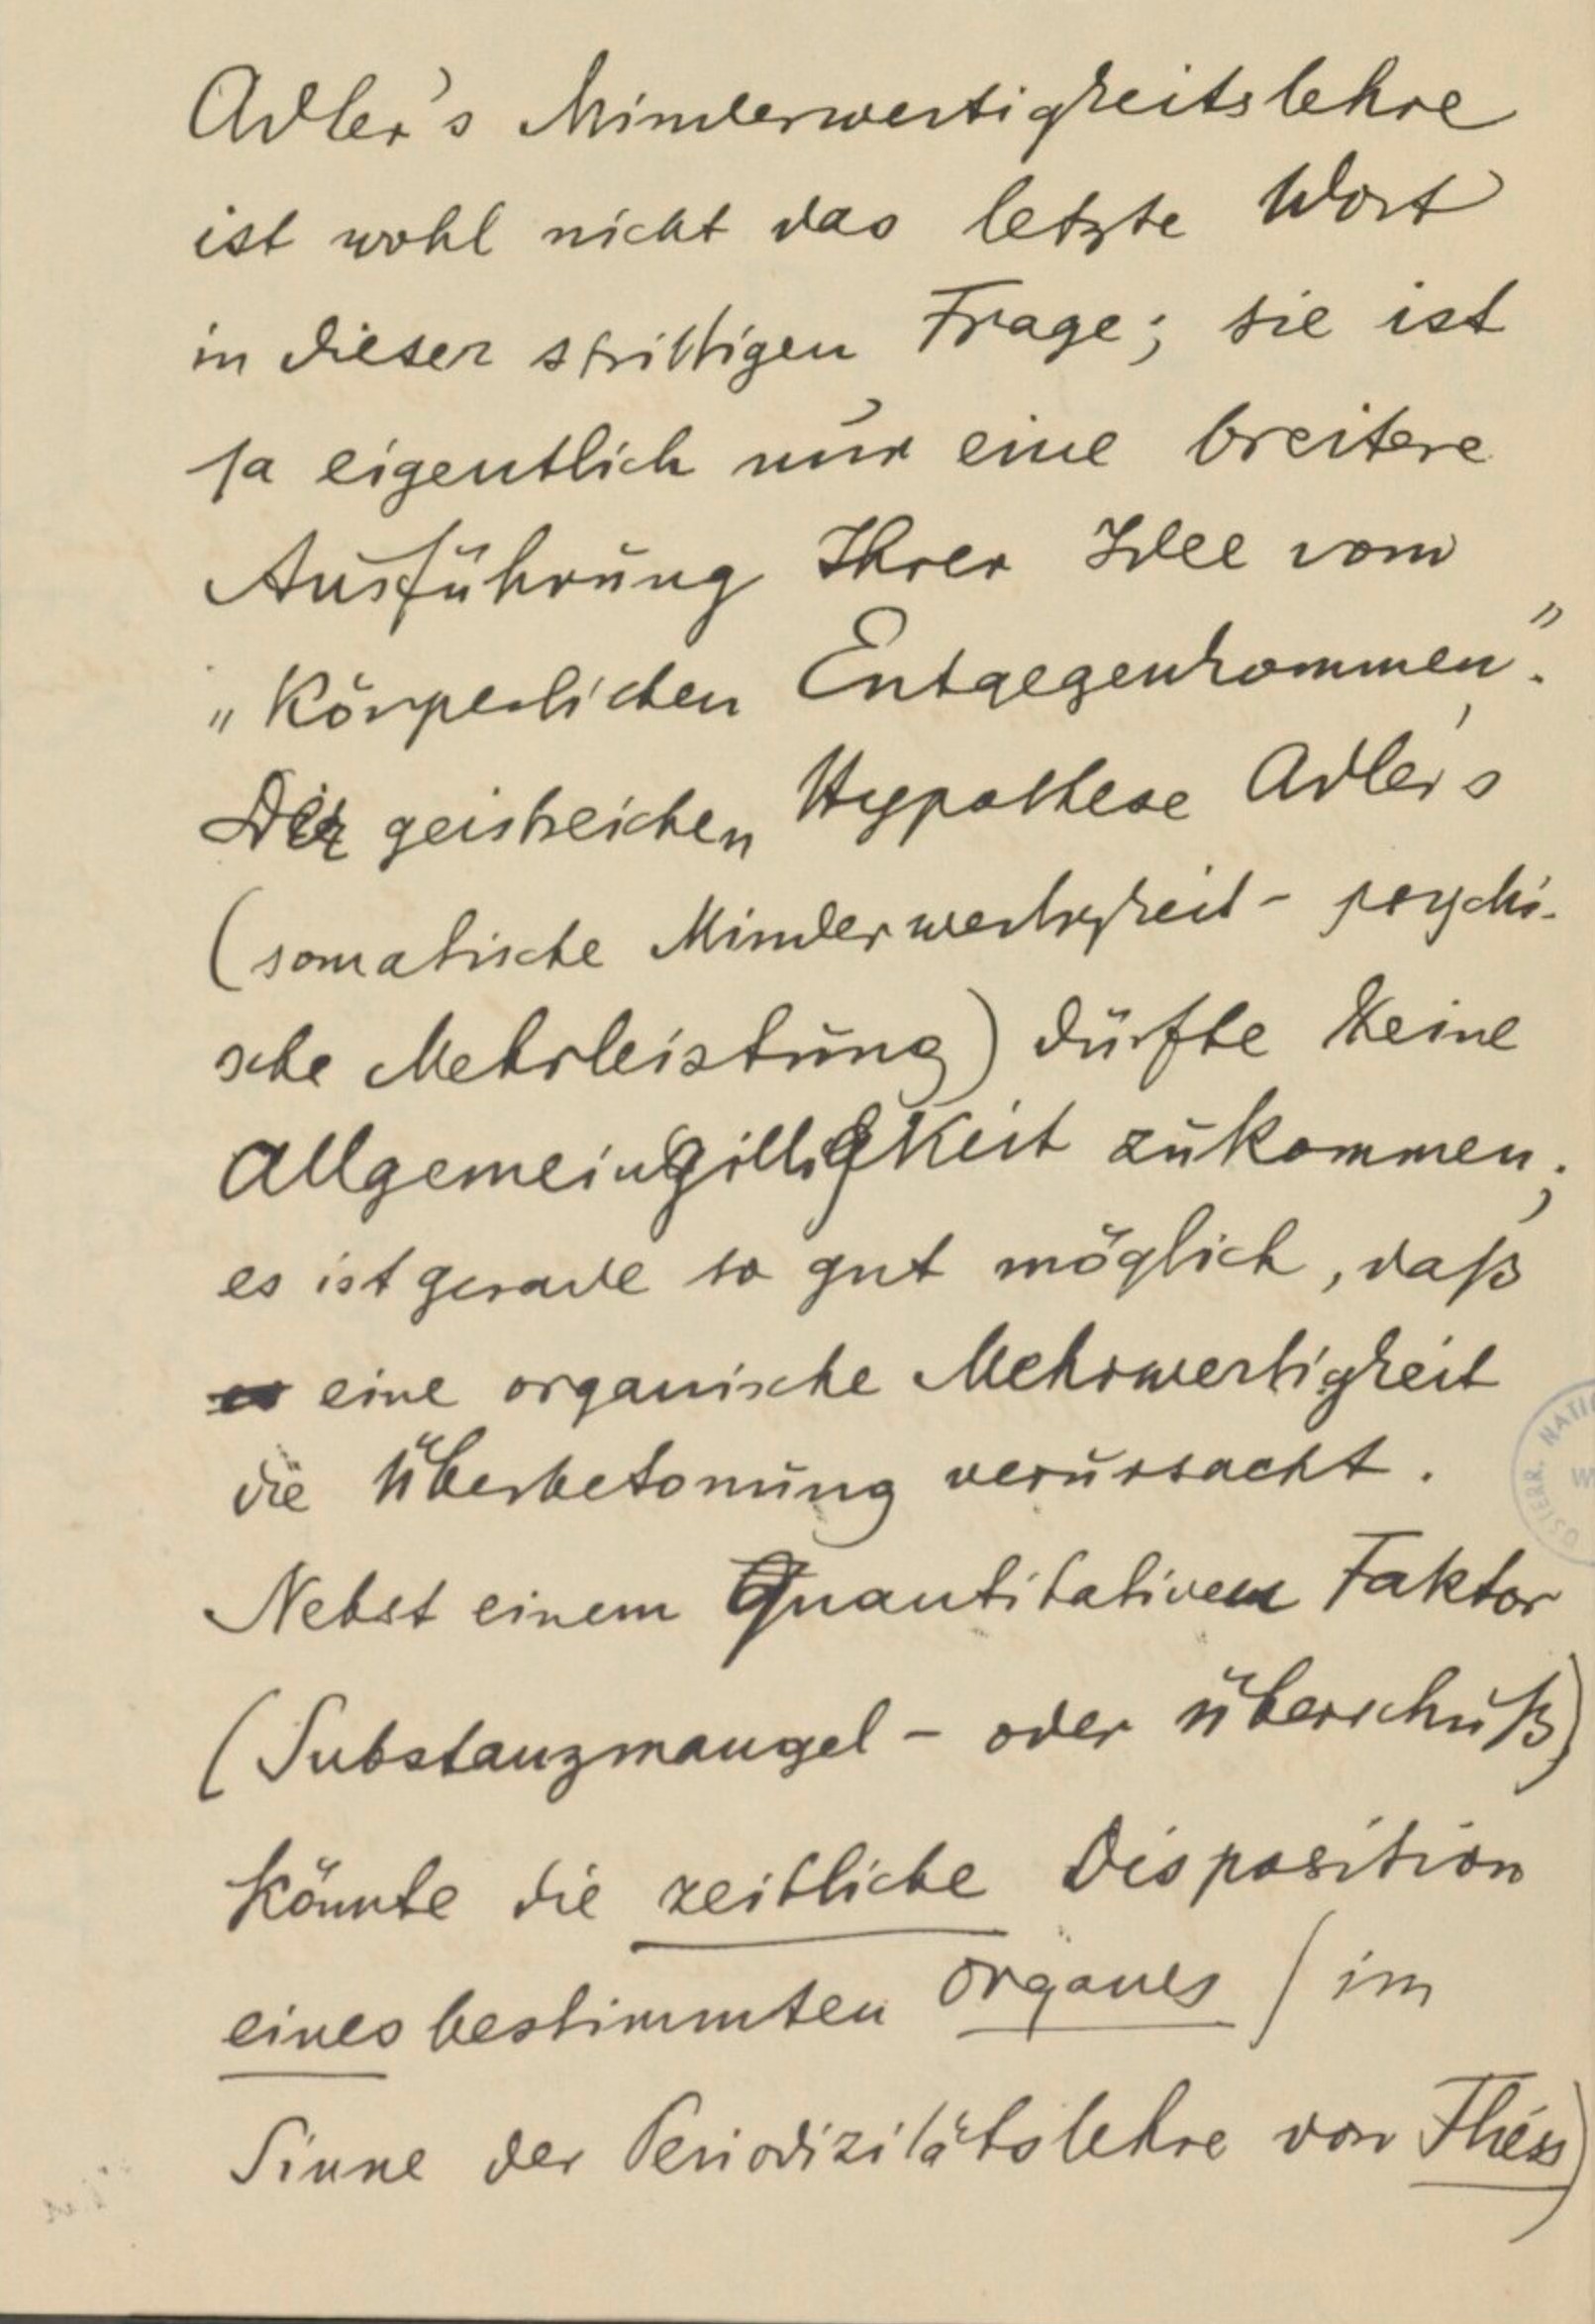 Adler's Minderwertigkeitslehre
ist wohl nicht das letzte Wort
in dieser strittigen Frage; sie ist
ja eigentlich nur eine breitere
Ausführung Ihrer Idee vom
„Körperlichen Entgegenkommen".
Der geistreichen Hypothese Adler's
(somatische Minderwertigkeit - psychi-
sche Mehrleistung) dürfte keine
Allgemeingültigkeit zukommen;
es ist gerade so gut möglich, daß
eine organische Mehrwertigkeit
die Überbetonung verursacht.
Nebst einem Quantitativen Faktor
(Substanzmangel - oder überschuß)
könnte die zeitliche Disposition
eines bestimmten Organes (im
Sinne der Periodizitätslehre von Fliess)
ÖSTERR. NATI
W